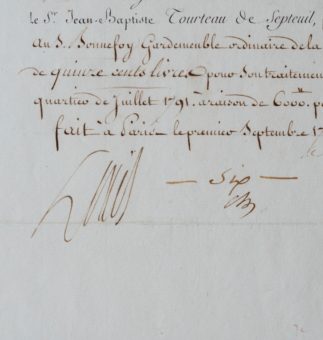 le Sr. Jean-Baptiste Tourteau de Septeuil,
Au S. Bonnefoy Gardemeuble ordinaire de la
de quinze cents livres pour son traitement
quartier de Juillet 1791. à raison de 6000.lt p
fait à Paris le premier Septembre 17
Louis
— Six —